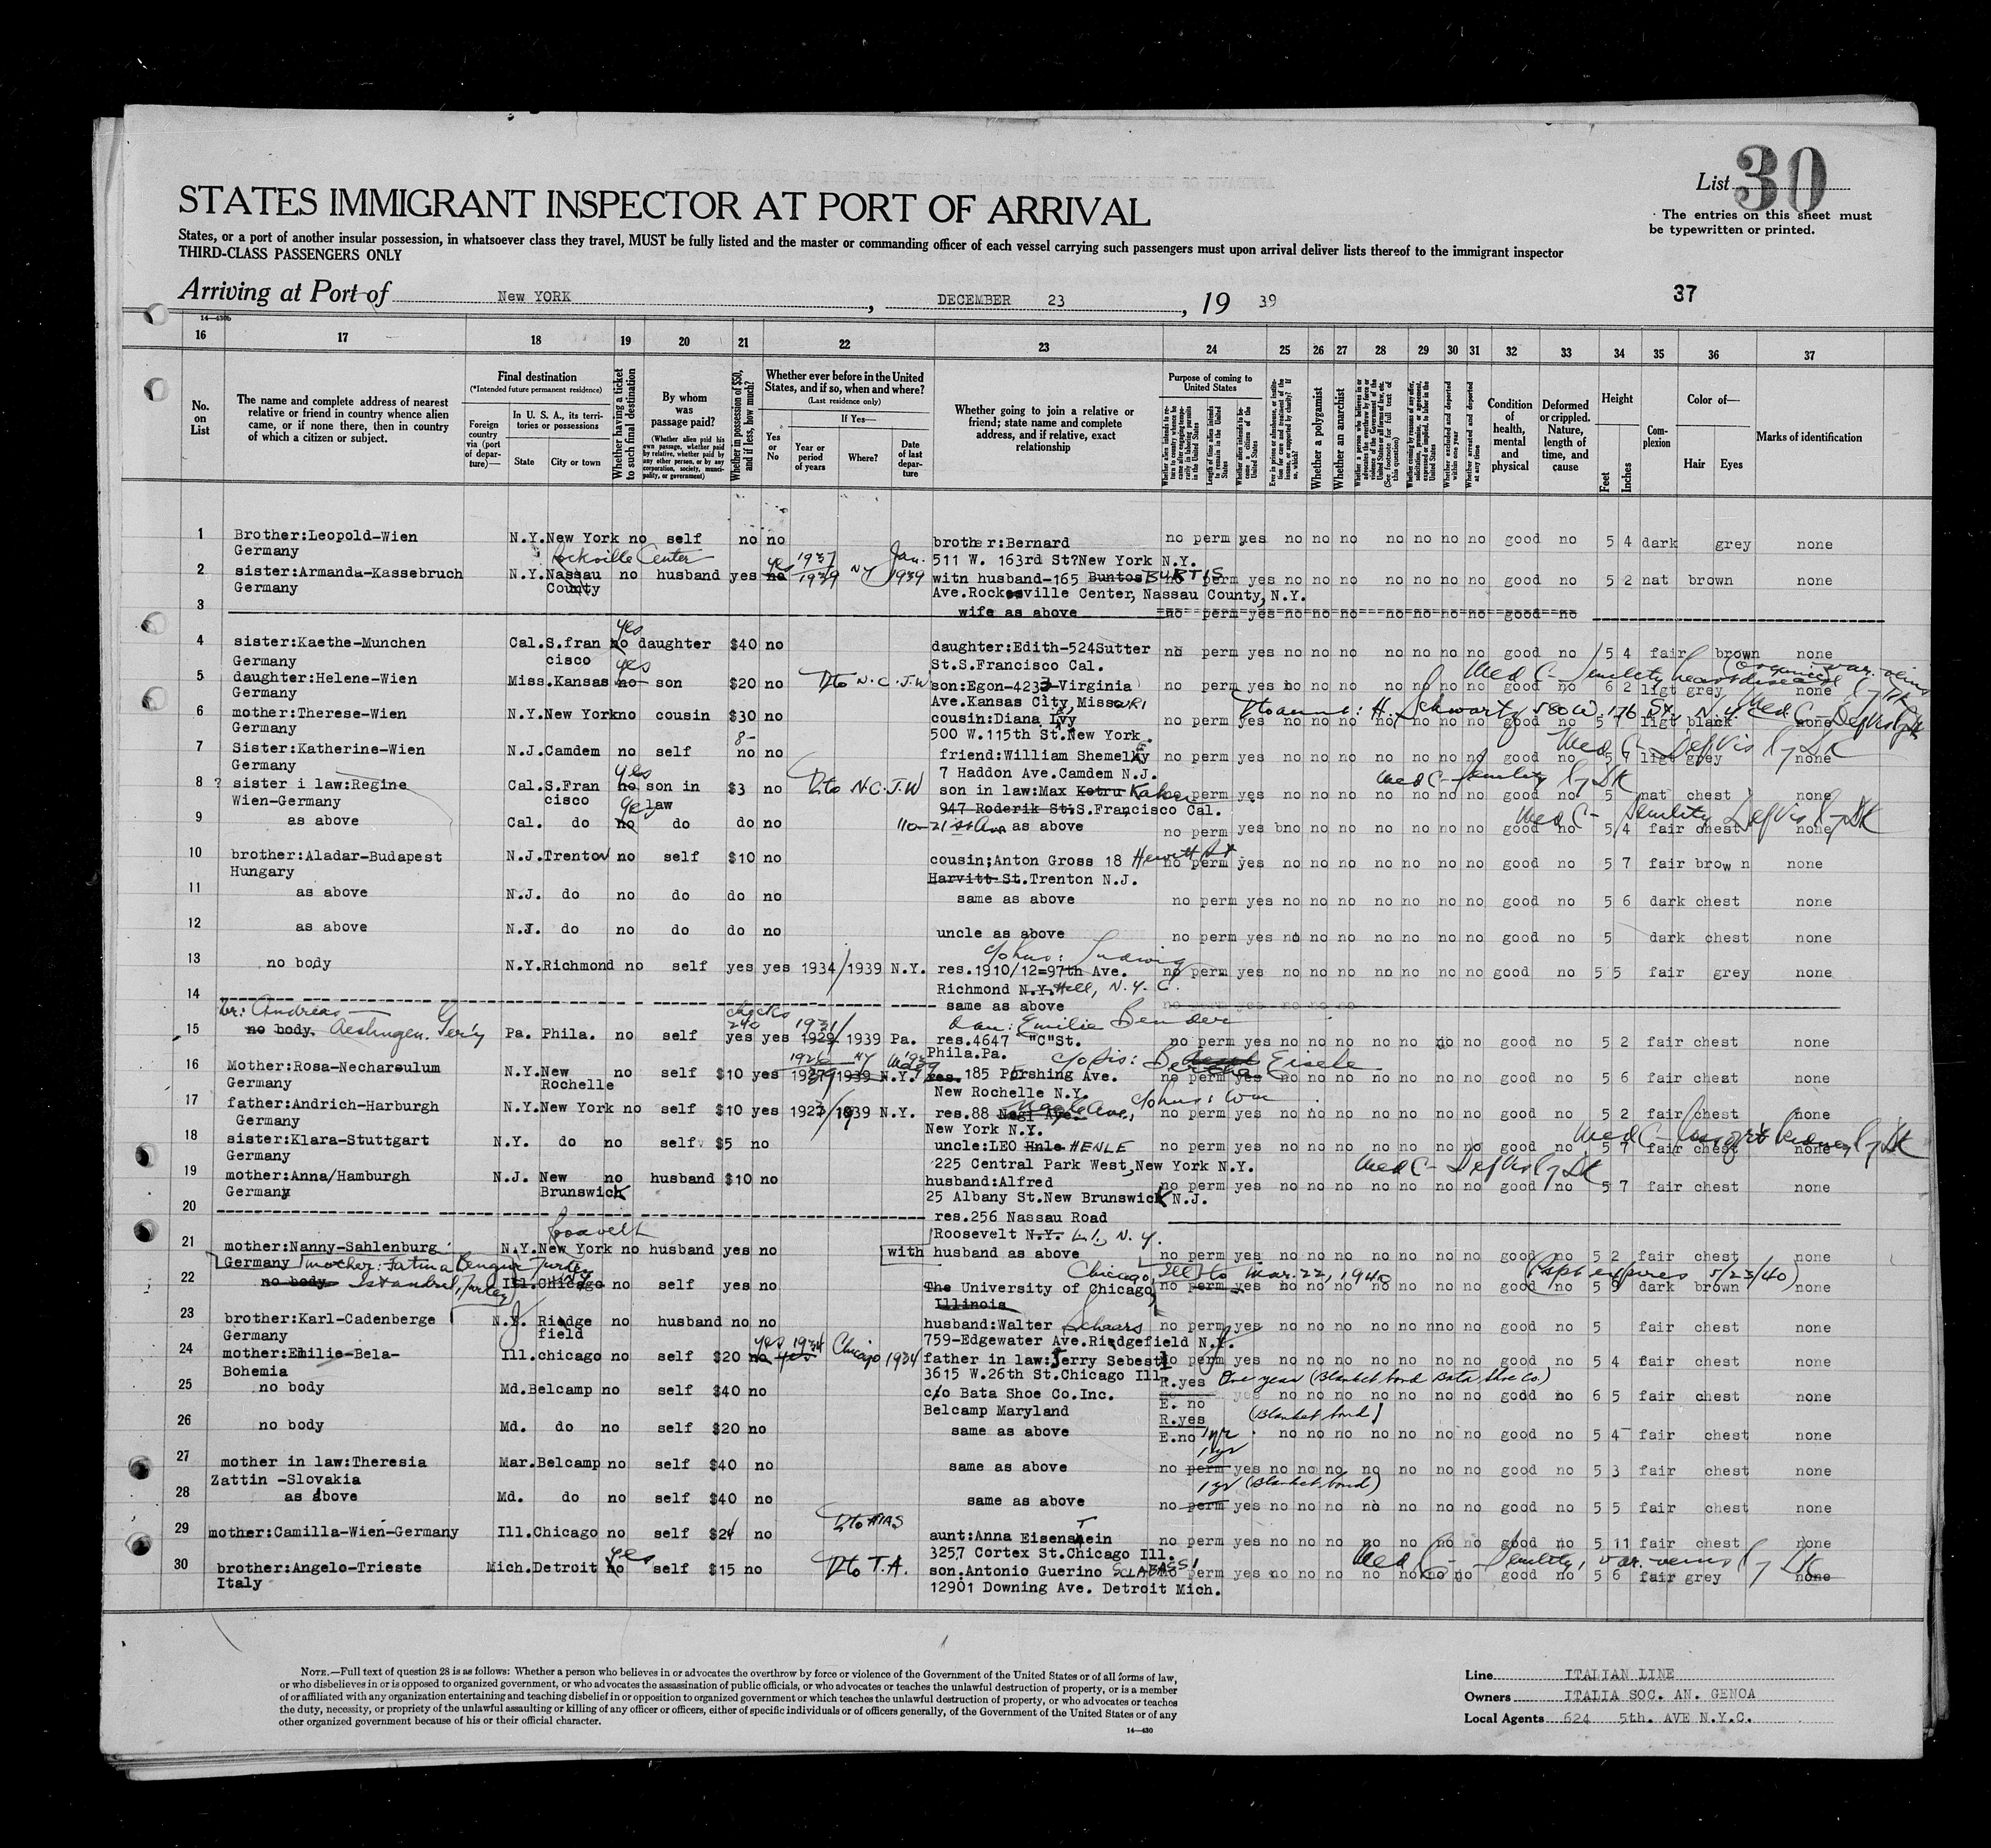 List 30
The entries on this sheet must
be typewritten or printed.
STATES IMMIGRANT INSPECTOR AT PORT OF ARRIVAL
States, or a port of another insular possession, in whatsoever class they travel, MUST be fully listed and the master or commanding officer of each vessel carrying such passengers must upon arrival deliver lists thereof to the immigrant inspector
THIRD-CLASS PASSENGERS ONLY
Arriving at Port of New YORK, DECEMBER 23, 19 39
37
14—430b
16 17 18 19 20 21 22 23 24 25 26 27 28 29 30 31 32 33 34 35 36 37
No. on List
The name and complete address of nearest relative or friend in country whence alien came, or if none there, then in country of which a citizen or subject.
Final destination
(*Intended future permanent residence)
Foreign country via (port of departure)—
In U. S. A., its territories or possessions
State
City or town
Whether having a ticket to such final destination
By whom was passage paid?
(Whether alien paid his own passage, whether paid by relative, whether paid by any other person, or by any corporation, society, municipality, or government)
Whether in possession of $50, and if less, how much?
Whether ever before in the United States, and if so, when and where?
(Last residence only)
Yes or No
If Yes—
Year or period of years
Where?
Date of last departure
Whether going to join a relative or friend; state name and complete address, and if relative, exact relationship
Purpose of coming to United States
Whether a polygamist
Whether an anarchist
Condition of health, mental and physical
Deformed or crippled. Nature, length of time, and cause
Height
Feet
Inches
Complexion
Color of—
Hair
Eyes
Marks of identification
1 Brother:Leopold-Wien N.Y. New York no self no no brother:Bernard no perm yes no no no no no no no good no 5 4 dark grey none
Germany Rockville Center 511 W. 163rd St?New York N.Y.
2 sister:Armanda-Kassebruch N.Y. Nassau no husband yes no yes 1937 1939 NY Jan. 1939 witn husband-165 Buntos BURTIS no perm yes no no no no no no no good no 5 2 nat brown none
Germany County Ave.Rockesville Center, Nassau County, N.Y.
3 wife as above no perm yes no no no no no no no good no
4 sister:Kaethe-Munchen Cal. S.fran no yes daughter $40 no daughter:Edith-524Sutter no perm yes no no no no no no no good no 5 4 fair brown none
Germany cisco St.S.Francisco Cal.
5 daughter:Helene-Wien Miss. Kansas no yes son $20 no N.C.J.W son:Egon-4233-Virginia no perm yes no no no no no no no good no 6 2 ligt grey none
Germany Ave.Kansas City,MissOURI
6 mother:Therese-Wien N.Y. New York no cousin $30 no cousin:Diana Lvy no perm yes no no no no no no no good no 5 ligt black none
Germany 500 W.115th St.New York
7 Sister:Katherine-Wien N.J. Camdem no self 8- no no friend:William Shemelky no perm yes no no no no no no no good no 5 7 ligt grey none
Germany 7 Haddon Ave.Camdem N.J.
8 ? sister i law:Regine Cal. S.Fran no yes son in $3 no N.C.J.W son in law:Max Kotru no perm yes no no no no no no no good no 5 nat chest none
Wien-Germany cisco law 947 Roderik St:S.Francisco Cal.
9 as above Cal. do no do do no as above no perm yes bno no no no no no no good no 5 4 fair chest none
10 brother:Aladar-Budapest N.J. Trenton no self $10 no cousin;Anton Gross 18 no perm yes no no no no no no no good no 5 7 fair brow n none
Hungary Harvitt St.Trenton N.J.
11 as above N.J. do no do do no same as above no perm yes no no no no no no no good no 5 6 dark chest none
12 as above N.J. do no do do no uncle as above no perm yes no no no no no no no good no 5 dark chest none
13 no body N.Y. Richmond no self yes yes 1934/1939 N.Y. c/o hus: Ludwig res.1910/12=97th Ave. no perm yes no no no no no no no good no 5 5 fair grey none
Richmond N.Y. Hill, N.Y.C.
14 same as above
Br: Andreas
15 no body. Pa. Phila. no self checks 240 yes yes 1929 1931/1939 Pa. dau: Emilie Bender res.4647 "C"St. no perm yes no no no no no no no good no 5 2 fair chest none
Phila.Pa.
16 Mother:Rosa-Necharsulum N.Y. New no self $10 yes N.Y. res. 185 Pershing Ave. c/o sis: Eisele no perm yes no no no no no no no good no 5 6 fair chest none
Germany Rochelle New Rochelle N.Y.
17 father:Andrich-Harburgh N.Y. New York no self $10 yes 1927/1939 N.Y. res.88 Nagl Ave. Nagle Ave., c/o hus: Wm no perm yes no no no no no no no good no 5 2 fair chest none
Germany New York N.Y.
18 sister:Klara-Stuttgart N.Y. do no self $5 no uncle:LEO Hnle HENLE no perm yes no no no no no no no good no 5 7 fair chest none
Germany 225 Central Park West,New York N.Y.
19 mother:Anna/Hamburgh N.J. New no husband $10 no husband:Alfred no perm yes no no no no no no no good no 5 7 fair chest none
Germany Brunswick 25 Albany St.New Brunswick N.J.
20 res.256 Nassau Road
Roosevelt N.Y. L.I., N.Y.
21 mother:Nanny-Sahlenburg N.Y. New York no husband yes no with husband as above no perm yes no no no no no no no good no 5 2 fair chest none
Germany mother: Fatma
22 no body Istanbul, Turkey Ill. Chicago no self yes no The University of Chicago, Chicago, Ill to Mar. 22, 1940 no perm yes no no no no no no no good no 5 9 dark brown none
Illinois (Pspt expires 5/23/40)
23 brother:Karl-Cadenberge N.Y. Riedge no husband no no husband:Walter Schaars no perm yes no no no no no nno no good no 5 fair chest none
Germany field 759-Edgewater Ave.Riedgefield N.Y.
24 mother:Emilie-Bela- Ill. chicago no self $20 no yes 1934 Chicago 1934 father in law:Jerry Sebest no perm yes no no no no no no no good no 5 4 fair chest none
Bohemia 3615 W.26th St.Chicago Ill.
25 no body Md. Belcamp no self $40 no c/o Bata Shoe Co.Inc. R.yes One year (Blanket bond Bata Shoe Co.) E. no no no no no no no no godd no 6 5 fair chest none
Belcamp Maryland
26 no body Md. do no self $20 no same as above R.yes E.no 1yr (Blanket bond) no no no no no no no good no 5 4 fair chest none
27 mother in law:Theresia Mar. Belcamp no self $40 no same as above no perm 1yr yes no no no no no no no good no 5 3 fair chest none
Zattin -Slovakia
28 as above Md. do no self $40 no same as above no perm 1yr (Blanket bond) yes no no no no no no no good no 5 5 fair chest none
29 mother:Camilla-Wien-Germany Ill. Chicago no self $24 no HIAS aunt:Anna Eisenstein no perm yes no no no no no no no good no 5 11 fair chest none
3257 Cortex St.Chicago Ill.
30 brother:Angelo-Trieste Mich. Detroit no yes self $15 no T.A. son:Antonio Guerino no perm yes no no no no no no no good no 5 6 fair grey none
Italy 12901 Downing Ave. Detroit Mich.
NOTE.—Full text of question 28 is as follows: Whether a person who believes in or advocates the overthrow by force or violence of the Government of the United States or of all forms of law,
or who disbelieves in or is opposed to organized government, or who advocates the assassination of public officials, or who advocates or teaches the unlawful destruction of property, or is a member
of or affiliated with any organization entertaining and teaching disbelief in or opposition to organized government or which teaches the unlawful destruction of property, or who advocates or teaches
the duty, necessity, or propriety of the unlawful assaulting or killing of any officer or officers, either of specific individuals or of officers generally, of the Government of the United States or of any
other organized government because of his or their official character.
14—430
Line ITALIAN LINE
Owners ITALIA SOC. AN. GENOA
Local Agents 624 5th. AVE N.Y.C.